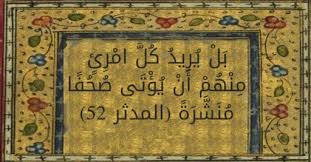 بَلْ يُرِيدُ كُلُّ امْرِئٍ
مِنْهُمْ أَنْ يُؤْتَى صُحُفًا
مُنَشَّرَةً (المدثر 52)